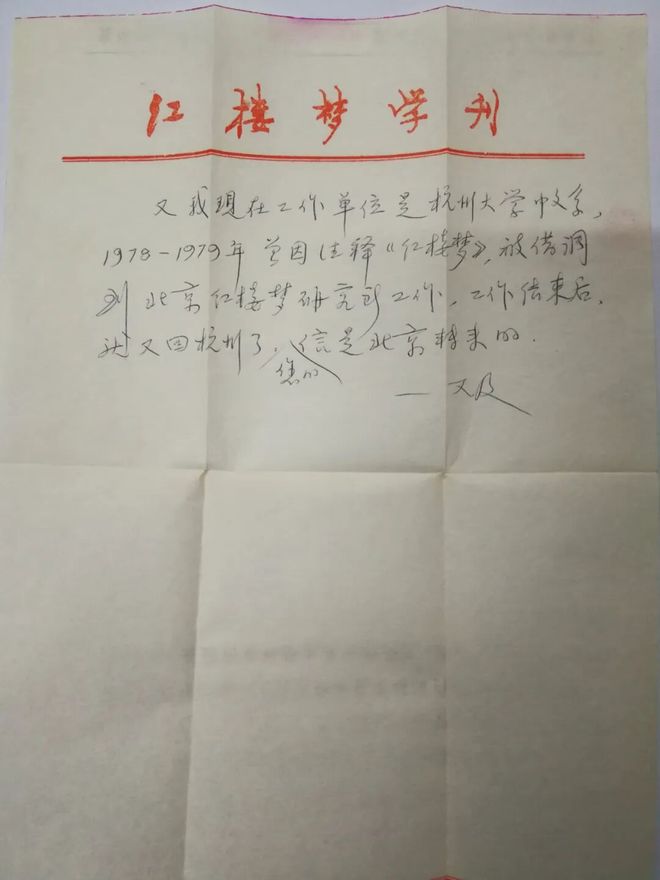 红楼梦学刊
又我现在工作单位是杭州大学中文系，
1978-1979年曾因注释《红楼梦》，被借调
到北京红楼梦研究所工作，工作结束后，
就又回杭州了，信是北京转来的．
您的
— 又及